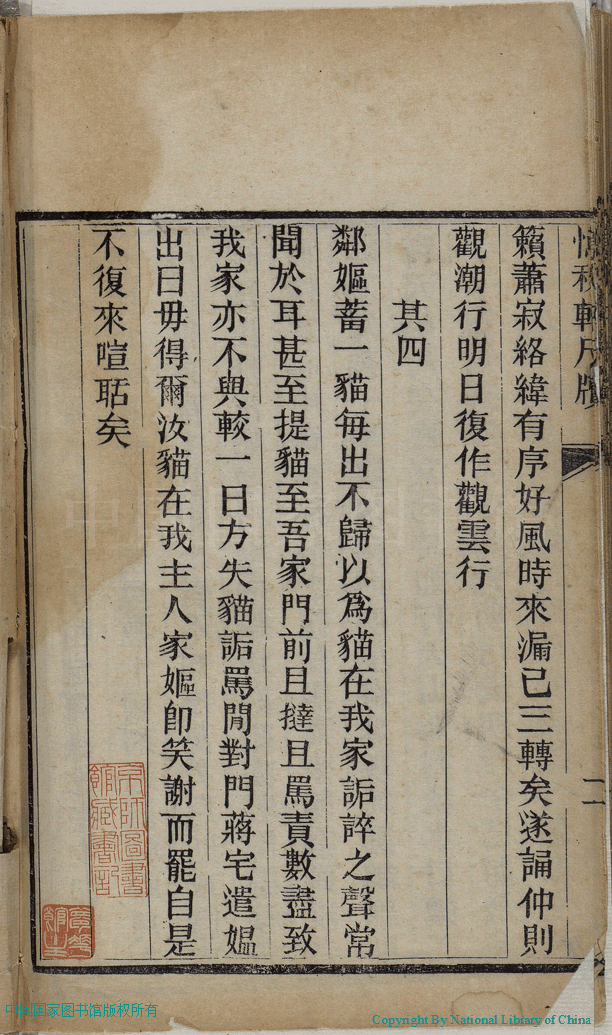 秋軒尺牘
二
籟蕭寂絡緯有序好風時來漏已三轉矣遂誦仲則
觀潮行明日復作觀雲行
其四
鄰嫗蓄一貓每出不歸以為貓在我家詬誶之聲常
聞於耳甚至提貓至吾家門前且撻且罵責數盡致
我家亦不與較一日方失貓詬罵閒對門蔣宅遣媼
出曰毋得爾汝貓在我主人家嫗卽笑謝而罷自是
不復來喧聒矣
京師圖書
館藏書記
中国国家图书馆版权所有
Copyright By National Library of China